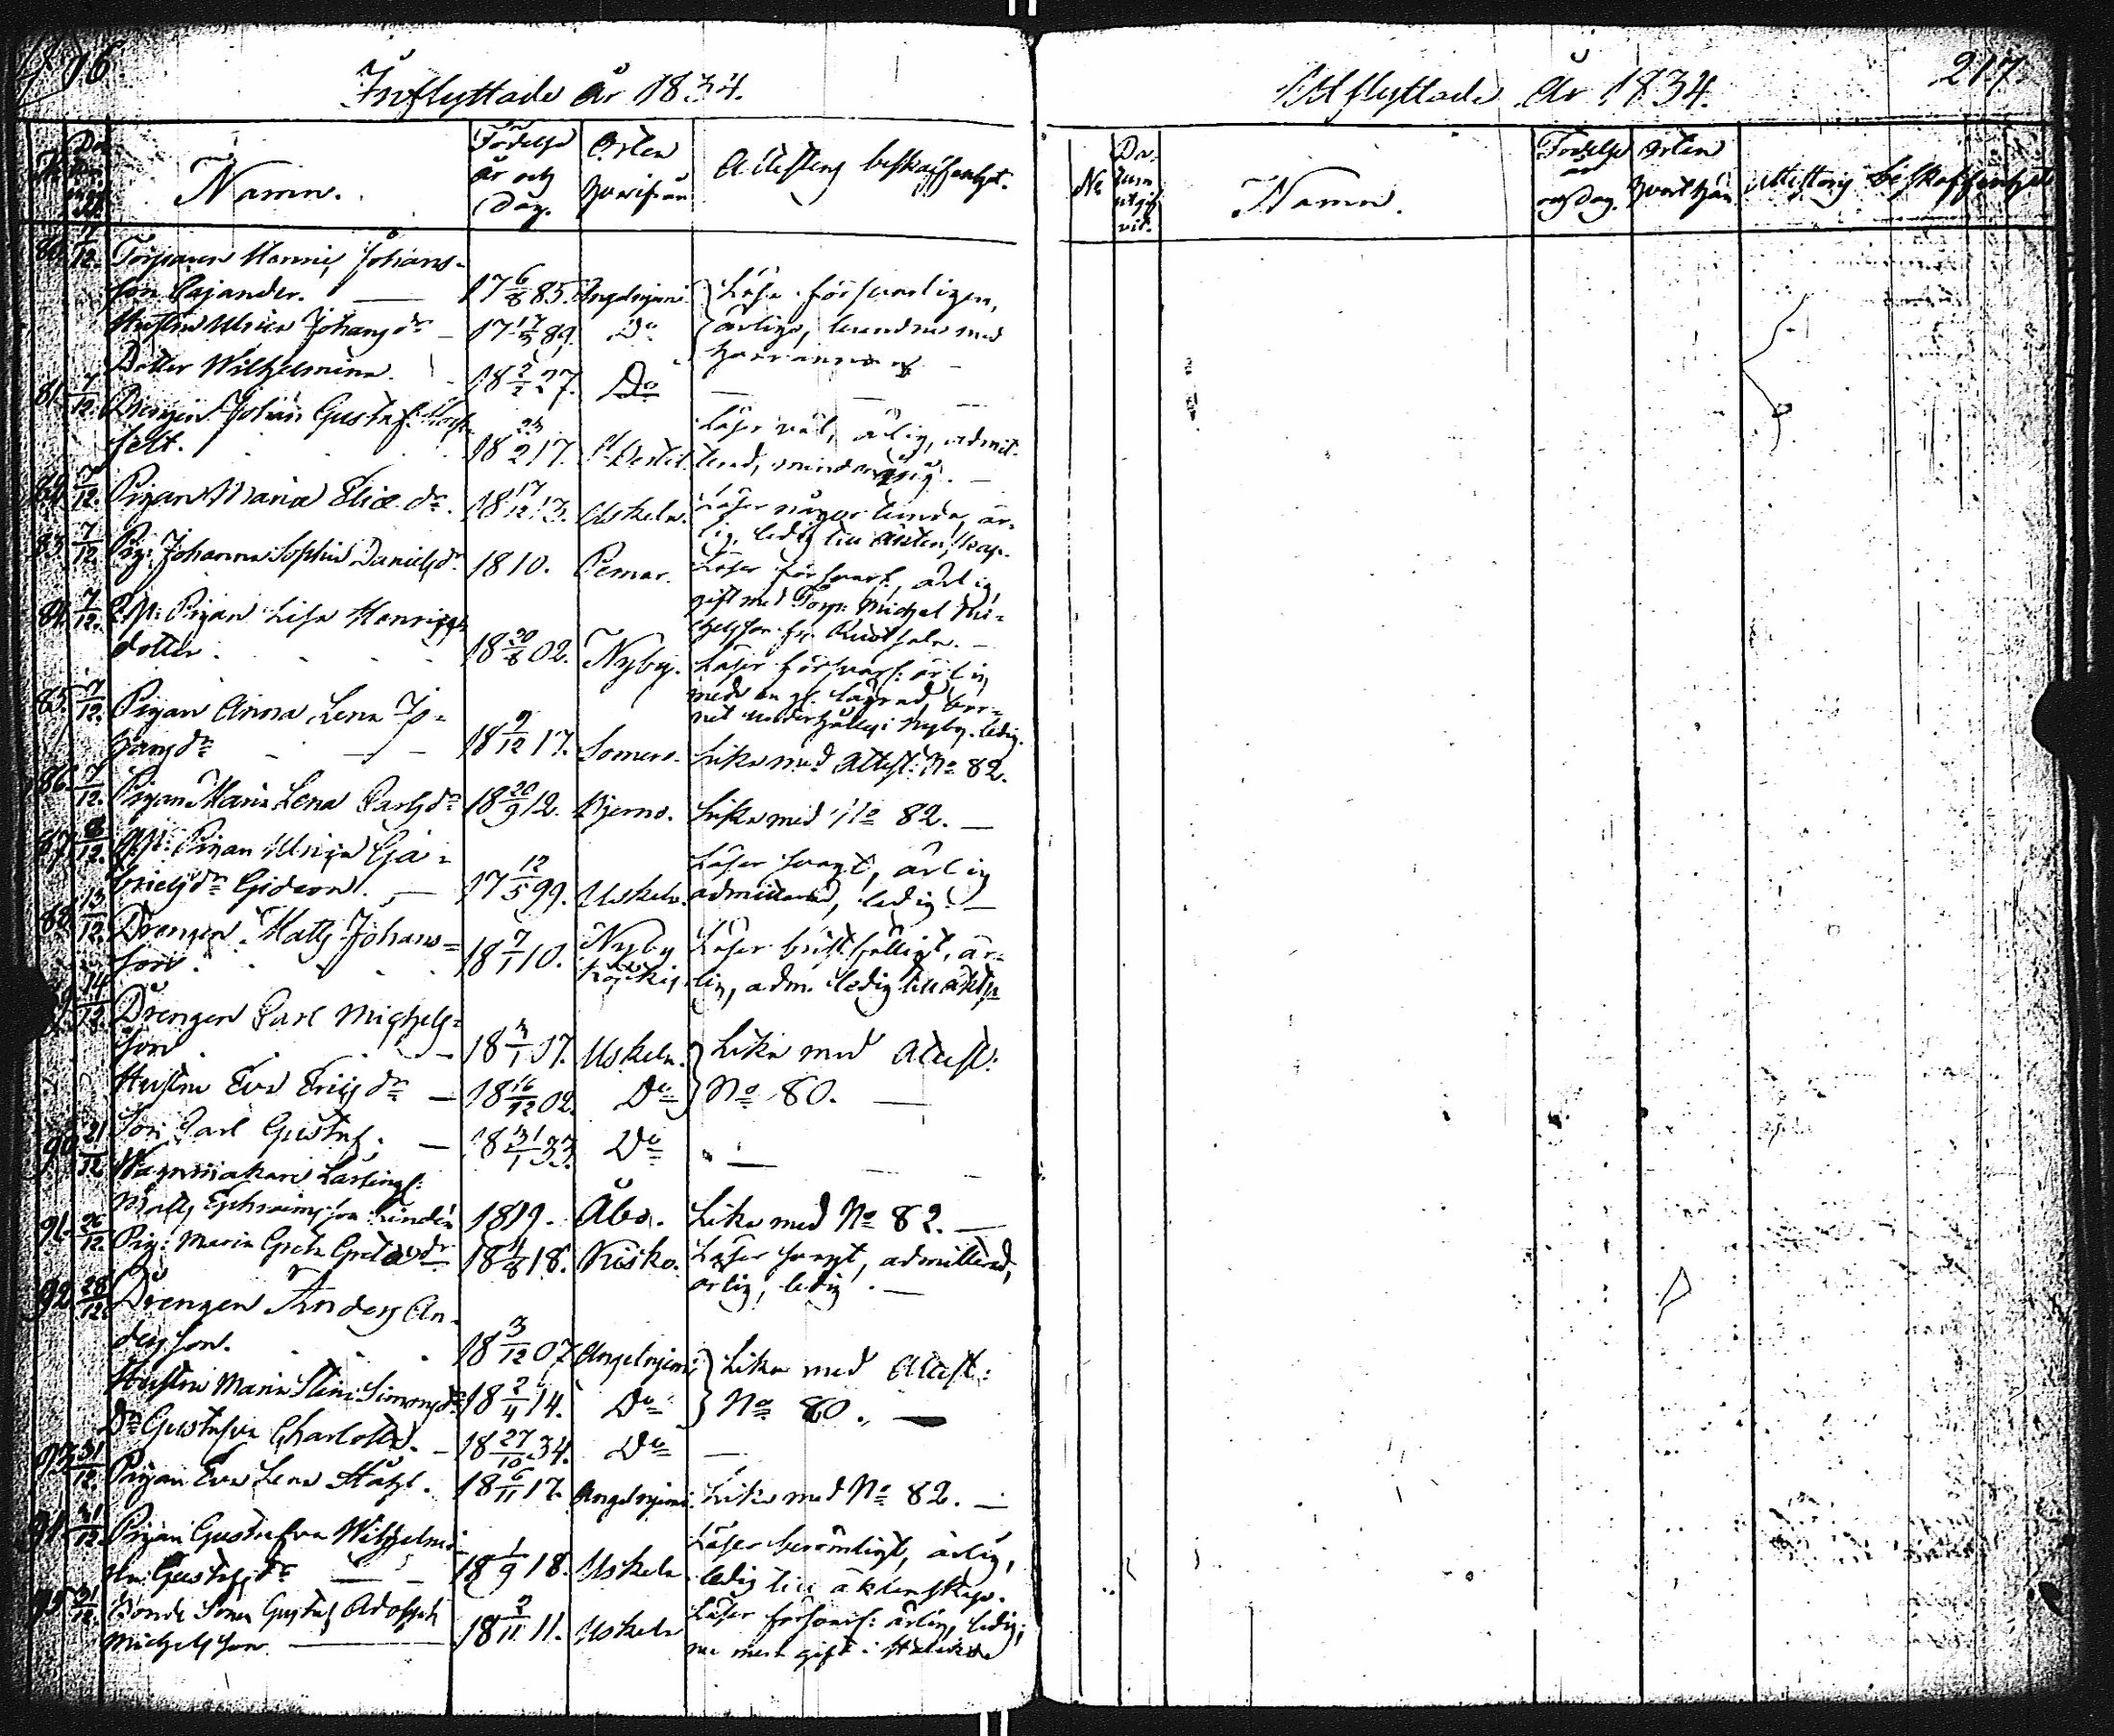 Inflyttade År 1834.
Namn.
Födelse år och Dag.
Orten hvarifrån
Attestens beskaffenhet.
80. 12. Torparen Johans-
son Cajander. — 17 6/8 85. Angelniemi Läsa försvarligen,
Hustrun Ulrica Johansdr — 17 89. Do ärliga,
Dotter Wilhelmina. 18 2/2 27. Do — —
81. 7/12. Drengen Johan Gustaf
felt. 18 2 17. Läser väl, ärlig, admit-
terad,
82. 7/12. Pigan Maria Eliæ dr. 18 17/12 13. Uskela. Läser någorlunda, är-
lig, ledig till äktenskap.
83. 7/12. Pig: Johanna Sophia Danielsdr. 1810. Pemar. Läser försvarl., ärlig,
gift med Torp: Michel Mi-
chelsson fr.
84. 7/12. Pigan Lisa Henrics
dotter. 18 20/8 02. Nyby. Läser försvarl: ärlig
med en gl. lägrad, bar-
net underhålles i Nyby. ledig.
85. 7/12. Pigan Anna Lena Jo-
hansdr — 18 9/12 17. Somero. Lika med Attest: No 82.
86. 7/12. Pigan Maria Lena Carlsdr 18 20/9 12. Bjerno. Lika med No 82. —
87. 12. Pigan Ulrica Ga-
brielsdr Gideon. — 17 12/5 99. Uskela. Läser svagt, ärlig
admitterad, ledig. —
88. 13/12. Drengen Matts Johans-
son. 18 7/1 10. Nyby Läser bristfälligt, är-
lig, adm. ledig till äktsk
14/12. Drengen Carl Michels-
son — 18 1 07. Uskela. Lika med Attest:
Hustru Eva Ericsdr — 18 16/12 02. Do No 80. —
Son Carl Gustaf. — 18 31/1 33. Do —
90. 21/12. Wagnmakare Lärlingl:
Matts Ephraimsson Lindén 1819. Åbo. Lika med No 82. —
91. 26/12. Pig: Maria Greta 18 4/8 18. Kisko. Läser svagt, admitterad,
ärlig, ledig. —
92. 28/12. Drengen Anders An-
dersson. 18 3/12 07. Angelniemi Lika med Attest:
Hustru Maria Stina Simonsdr 18 2/4 14. Do No 80. —
Dr Gustafva Charlotta. — 18 27/10 34. Do —
93. 31/12. Pigan Eva Lena Ståhl. 18 6/11 17. Angelniemi. Lika med No 82. —
94. 31/12. Pigan Gustafva Wilhelmi-
na Gustafsdr — 18 1/9 18. Uskela. Läser berömligt, ärlig,
ledig till äktenskap.
95. 31/12. Bonde Sonen Gustaf Adolph
Michelsson — 18 2/11 11. Uskela Läser försvarl: ärlig, ledig,
nu mera gift i
217.
Utflyttade År 1834.
No
Datum utgifvit.
Namn.
Födelse år och Dag.
Orten hvarthän
Attestens beskaffenhet